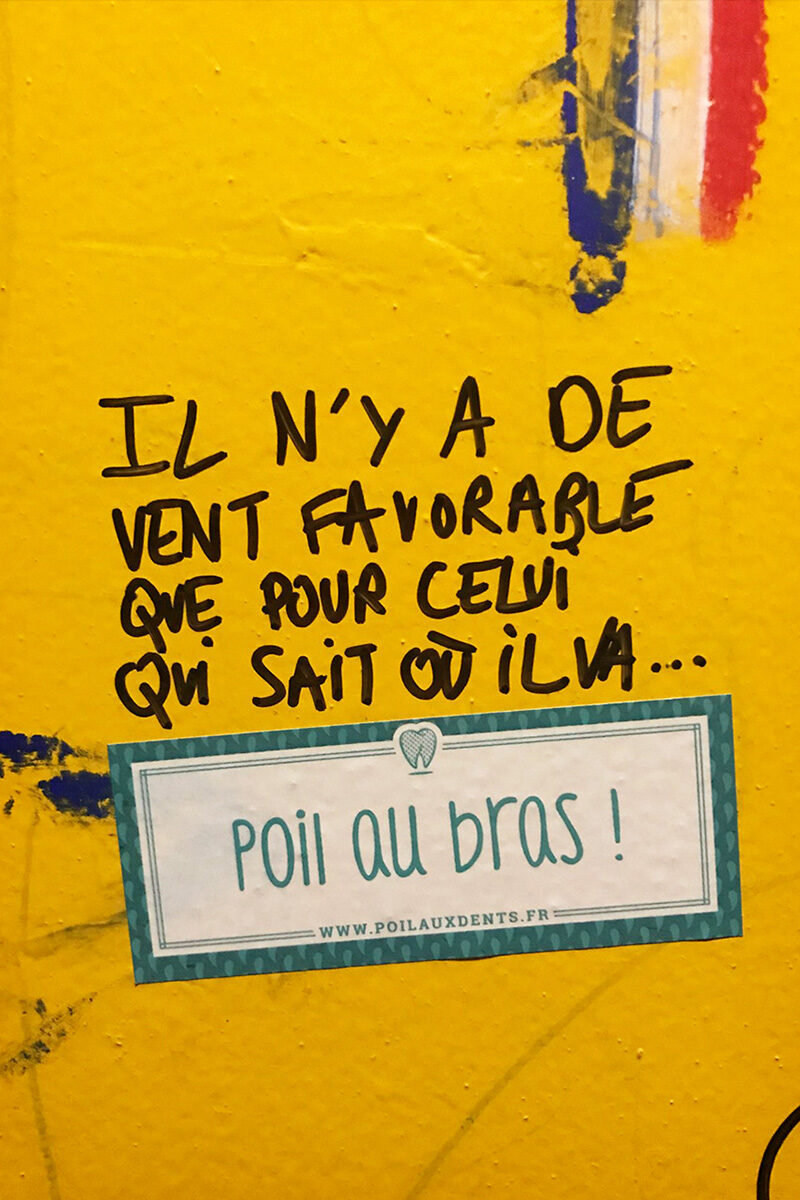 IL N'Y A DE
VENT FAVORABLE
QUE POUR CELUI
QUI SAIT OÙ IL VA...
poil au bras !
WWW.POILAUXDENTS.FR